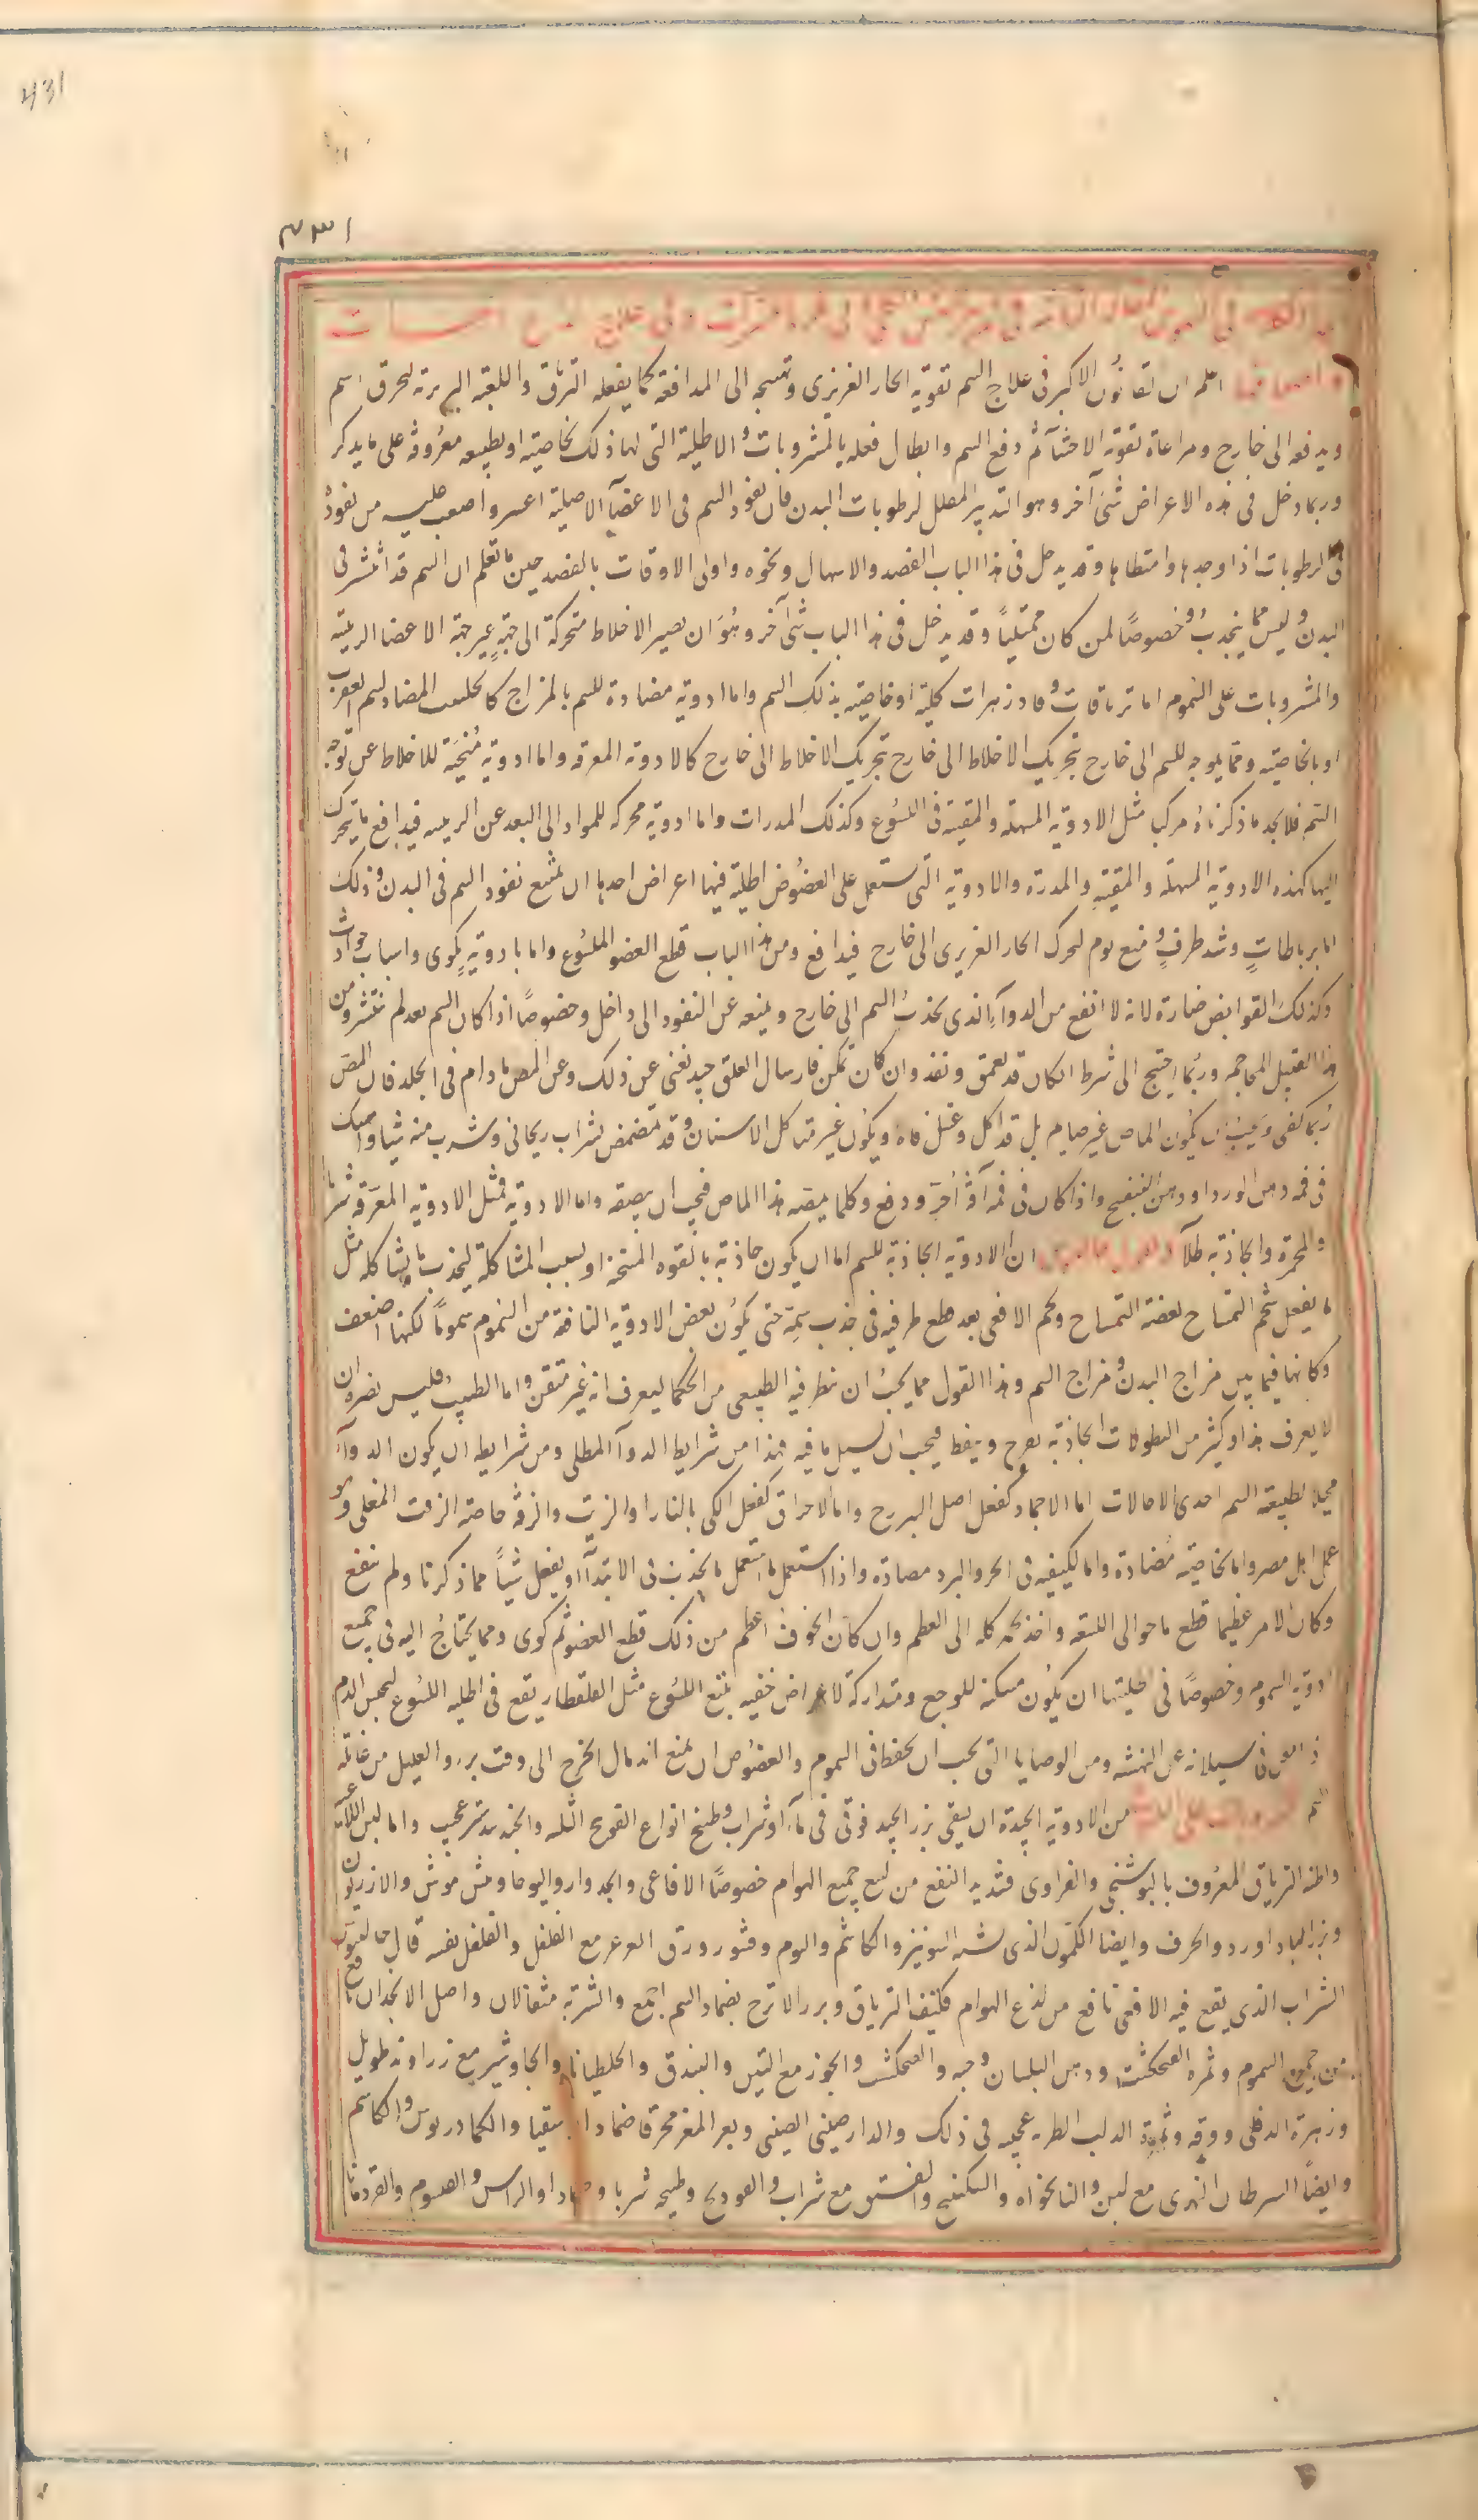 431
۴۳۱
اعلم ان القانون الاكبر فى علاج السم تقوية الحار الغريزى وتهييجه الى المدافعة كما يفعله الترياق واللعبة البربرية لتحرق السم
ويدفعه الى خارج ومراعاة تقوية الاحشآء ثم دفع السم وابطال فعله بالمشروبات والاطلية التى لها ذلك بخاصيته او بطبيعه معروفة على ما يذكر
وربما دخل فى هذه الاعراض شئ آخر وهو التدبير المقلل لرطوبات البدن فان نفوذ السم فى الاعضآ الاصلية اعسر واصعب عليه من نفوذه
فى الرطوبات اذا وجدها وامتطاها وقد يدخل فى هذا الباب الفصد والاسهال ونحوه واولى الاوقات بالفصد حين ما تعلم ان السم قد انتشر فى
البدن وليس مما ينجذب وخصوصًا لمن كان ممتليًا وقد يدخل فى هذا الباب شئ آخر وهو ان يصير الاخلاط متحركة الى جهةٍ غير جهة الاعضا الرئيسه
والمشروبات على السموم اما ترياقات وفادزهرات كلية او خاصية بذلك السم واما ادوية مضادة للسم بالمزاج كالحلتيت المضاد لسم العقرب
او بالخاصيته ومما يوجه للسم الى خارج تحريك الاخلاط الى خارج تحريك الاخلاط الى خارج كالادوية المعرقه واما ادوية مُنحّية للاخلاط عن توجه
السم فلا يجد ما ذكرناه مركبا مثل الادوية المسهلة والمقيئة فى اللسوع وكذلك المدرات واما ادوية محركه للمواد الى البعد عن الرئيسه فيدافع ما يتحرك
اليها كهذه الادوية المسهلة والمقيئة والمدرّة والادوية التى تستعمل على العضوض اطلية فيها اعراض احدها ان تمنع نفوذ السم فى البدن وذلك
اما برباطاتٍ وشد طرفٍ ومنع نوم لتحرك الحار الغريزى الى خارج فيدافع ومن هذا الباب قطع العضو الملسوع واما بادوية يكوى واسباب حوادث
وكذلك القوابض ضارة لانه لا انفع من الدوآء الذى يجذب السم الى خارج ويمنعه عن النفوذ الى داخل وخصوصًا اذا كان السم بعد لم ينتشر ومن
هذا القبيل المحاجم وربما احتيج الى شرط ان كان قد تعمق ونفذ وان كان تمكن فارسال العلق جيد تغنى عن ذلك وعن المص ما دام فى الجلد فان المص
ربما كفى ويجب ان يكون الماص غير صايم بل قد اكل وغسل فاه ويكون غير متاكل الاسنان وقد تمضمض بشراب ريحانى وشرب منه شيا وامسك
فى فمه دهن الورد او دهن البنفسج واذا كان فى فمه آفة اخر ودفع وكلما يمصه هذا الماص فيجب ان يبصقه واما الادوية فمثل الادوية المعرقة شربا
والمحمرة والجاذبة طلآ ان الادوية الجاذبة للسم اما ان يكون جاذبة بالقوه المسخنة او بسبب المشاكلة ليجذب ما يشاكله مثل
ما يفعل شحم التمساح لعضة التمساح ولحم الافعى بعد قطع طرفيه فى جذب سمة حتى يكون بعض الادوية النافعة من السموم سمومًا لكنها اضعف
وكانها فيما بين مزاج البدن ومزاج السم وهذا القول مما يجب ان ينظر فيه الطبيعى من الحكما ليعرف انه غير متقن واما الطبيب فليس يضره ان
لا يعرف هذا وكثير من النطولات الجاذبة يقرح وينفط فيجب ان يسيل ما فيه فهذا من شرايط الدوآ المطلى ومن شرايطه ان يكون الدوآء
محيلا لطبيعة السم احدى الاحالات اما الاجماد كفعل اصل اليبروح واما الاحراق كفعل الكى بالنار او الزيت والزفت خاصة الزفت المغلى وهو
عمل اهل مصر واما بخاصيته مُضادة واما لكيفيه فى الحر والبرد مضادة واذا استعمل ما استعمل ما يجذب فى الابتدآ او يفعل شيئًا مما ذكرنا ولم ينفع
وكان الامر عظيما قطع ما حوالى اللسعه واخذ لحمه كله الى العظم وان كان الخوف اعظم من ذلك قطع العضو ثم كوى ومما يحتاج اليه فى جميع
ادوية السموم وخصوصًا فى اطليتها ان يكون مسكنة للوجع ومتداركة لاعراض خفيه تمنع اللسوع مثل القلقطار يقع فى اطليه اللسوع ليحبس الدم
فى سيلانه عن النهشه ومن الوصايا التى يجب ان يحفظ فى السموم والعضوض ان يمنع اندمال الجرح الى وقت برء والعليل من غائلة
السم من الادوية الجيدة ان يسقى بزر الجيد فوقى فى مآء او شراب وطبخ انواع القويح الثلثه والجندبيدستر عجيب واما لبس اللاعية
واظنه الترياق المعروف بالبوشنجى والفراوى فشديد النفع من لسع جميع الهوام خصوصًا الافاعى والجدوار والبوحا وبيش موش والازريون
وبزر الباداورد والحرف وايضا الكمون الذى يشبه الشونيز والكاشم والثوم وقشور ورق العرعر مع الفلفل والفلفل نفسه قال جالينوس
الشراب الذى يقع فيه الافعى نافع من لذع الهوام فكيف الترياق وبزر الاترج يضاد السم اجمع والشربة مثقالان واصل الانجدان نافع
من جميع السموم وثمره الفنجنكشت ودهن البلسان وحبه والجوز مع التين والبندق والجنطيانا والجاوشير مع زراوند طويل
وزهرة الدفلى وورقه وثمرة الدلب الطريه عجيبه فى ذلك والدارصينى الصينى وبعر المعز محرقا ضمادا او سقيا والكمادريوس والكاشم
وايضًا السرطان النهرى مع لبن والنانخواه والسكبينج والفستق مع شراب والفودنج وطبيخه شربا وضمادا والراسن والقيصوم والقردمانا